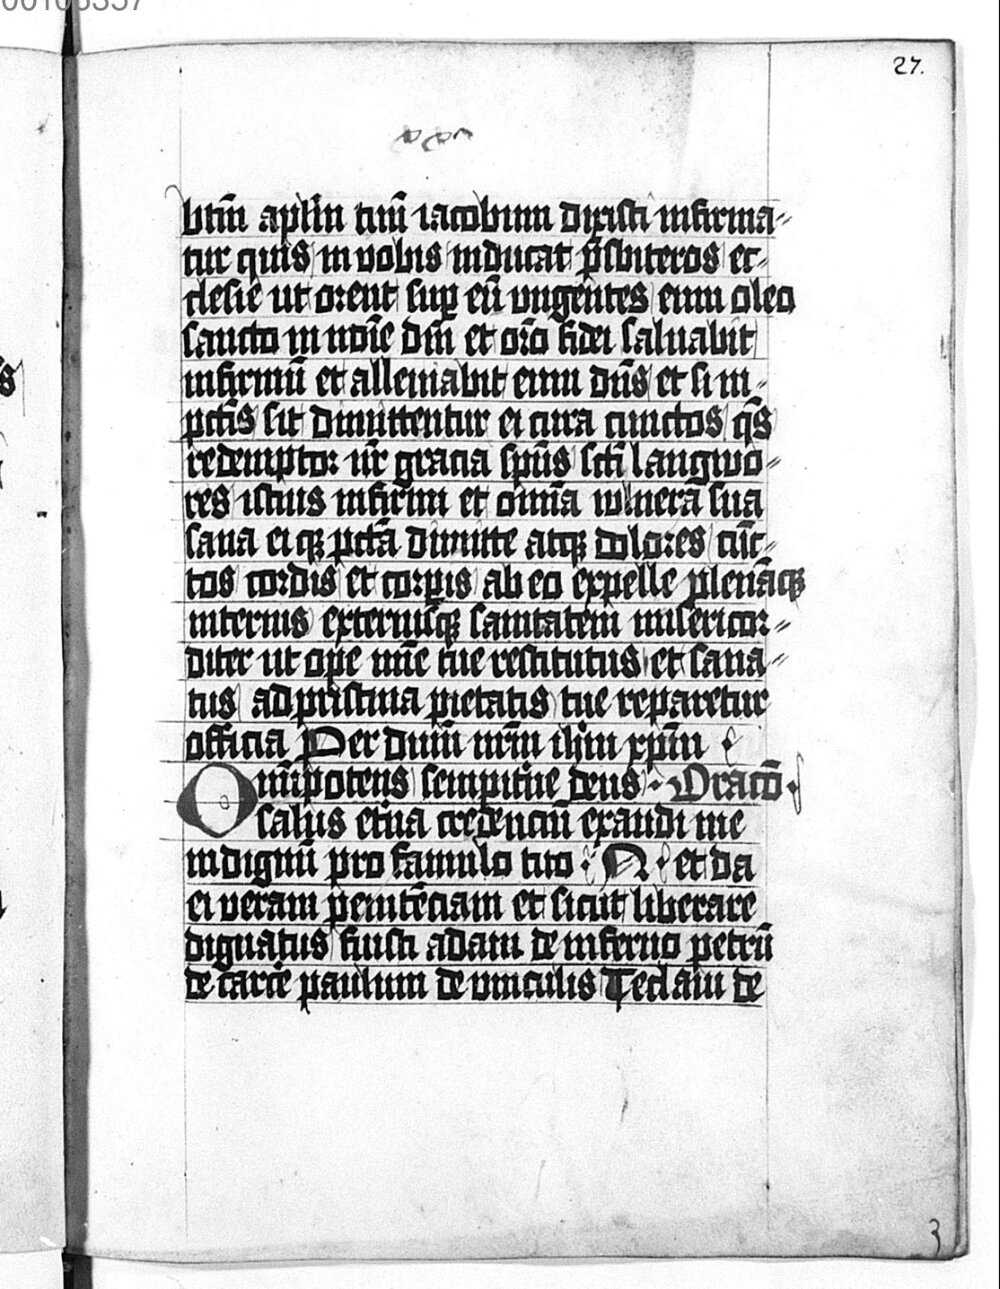 00106357
27.
btm̄ aplm̄ tuū iacobum dixisti infirma⸗
tur quis in vobis inducat p̄sbiteros ec⸗
clesie ut orent sup eū ungentes eum oleo
sancto in noīe dn̄i et orō fidei saluabit
infirmū et alleuiabit eum dn̄s et si in⸗
pctīs sit dimittentur ei cura cunctos qs̄
redemptor nr̄ gracia spūs scī langwo⸗
res istius infirmi et omīa wlnera sua
sana eiqꝫ pctā dimitte atqꝫ dolores cūc⸗
tos cordis et corpis ab eo expelle plenāqꝫ
interius exteriusqꝫ sanitatem misericor⸗
diter ut ope mīe tue restitutus et sana⸗
tus ad pristina pietatis tue reparetur
officia Per dnm̄ nrm̄ ihm̄ xpm̄
Om̄ipotens sempitne deus Oracō
salus etna credenciū exaudi me
indignū pro famulo tuo N et da
ei veram penitēciam et sicut liberare
dignatus fuisti adam de inferno petrū
de carce paulum de vinculis Teclam de
3